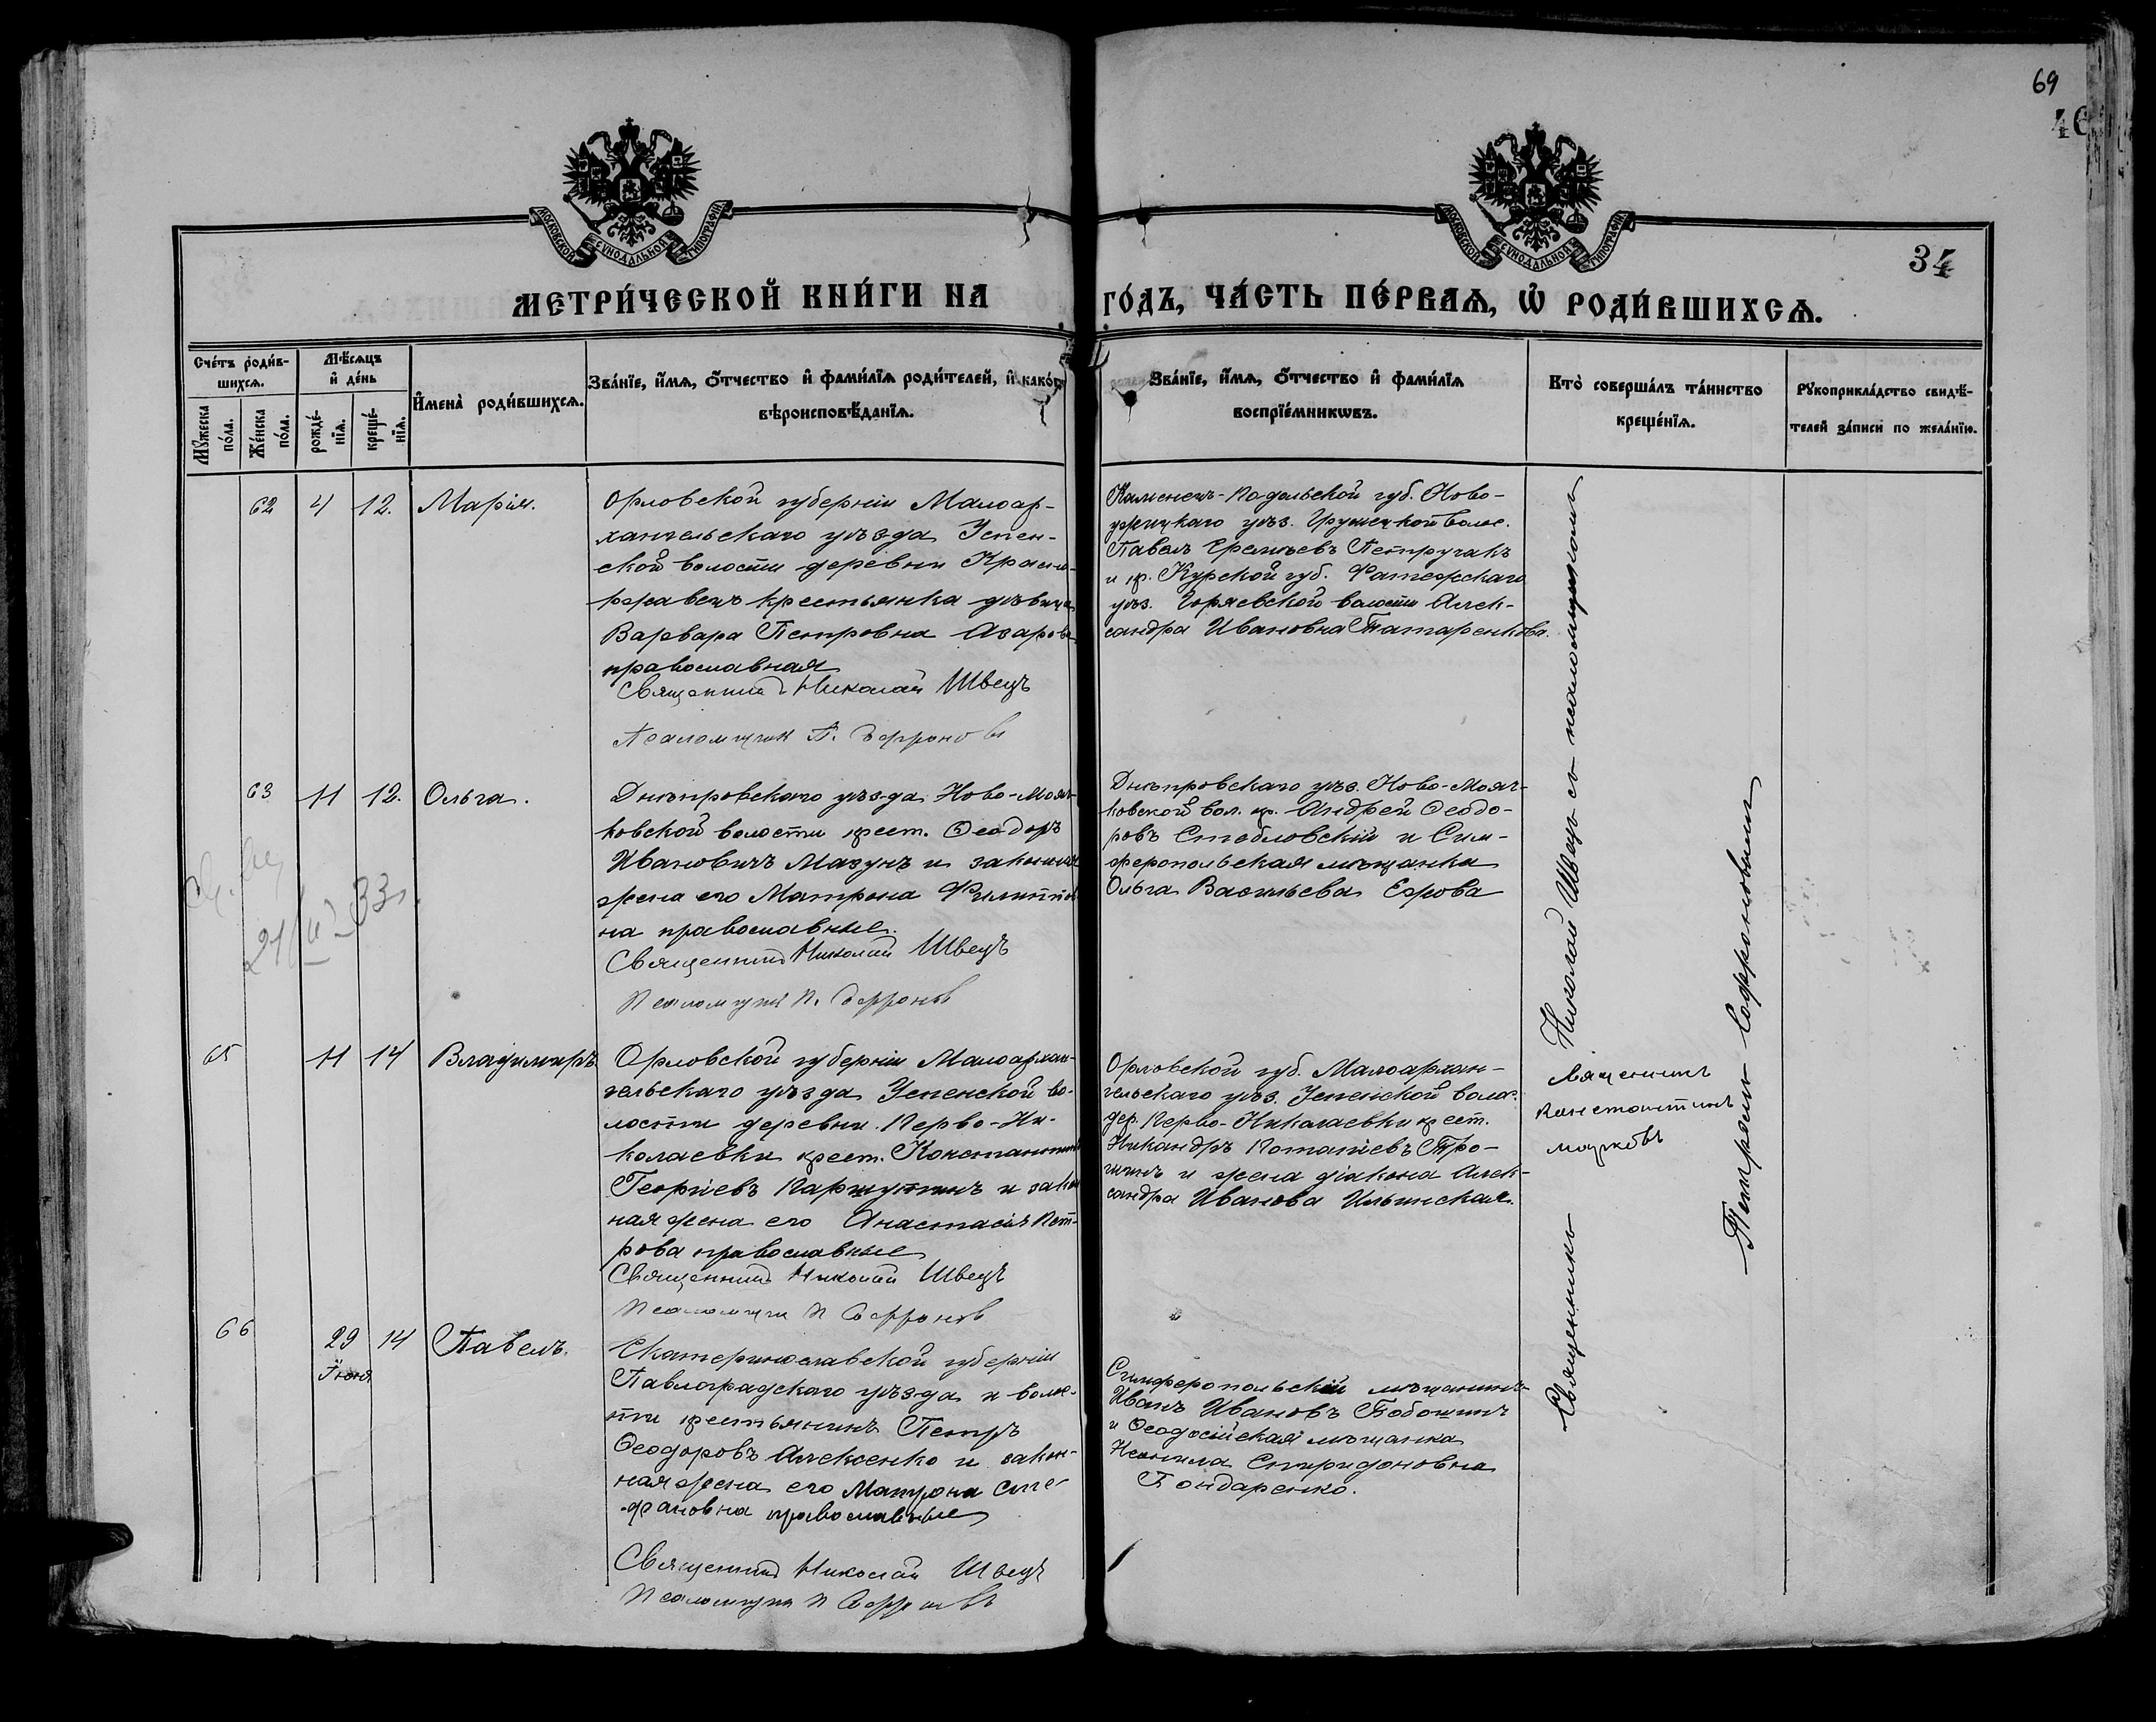 69
46
МОСКОВСКОЙ СУНОДАЛЬНОЙ ТИПОГРАФИИ
МОСКОВСКОЙ СУНОДАЛЬНОЙ ТИПОГРАФИИ
34
МЕТРИ́ЧЕСКОЙ КНИ́ГИ НА ГО́ДЪ, ЧА́СТЬ ПЕ́РВАѦ, Ѡ҆ РОДИ́ВШИХСѦ.
Сче́тъ роди́в-
шихсѧ.
Мꙋжеска
по́ла.
Же́нска
по́ла.
Мѣ́сѧцъ
и҆ де́нь
рожде́-
нїѧ.
креще́-
нїѧ.
И҆мена̀ роди́вшихсѧ.
Зва́нїе, и҆́мѧ, ѻ҆́тчество и҆ фами́лїѧ роди́телей, и҆ како́гѡ
вѣроисповѣ́данїѧ.
Зва́нїе, и҆́мѧ, ѻ҆́тчество и҆ фами́лїѧ
воспрїе́мникѡвъ.
Кто̀ соверша́лъ та́инство
креще́нїѧ.
Рꙋкоприкла́дство свидѣ́-
телей за́писи по жела́нїю.
62 4 12. Марія.
Орловской губерніи Малоар-
хангельскаго уѣзда Успен-
ской волости деревни
крестьянка дѣвица
Варвара Петровна Азарова
православная
Священник Николай Швецъ
Псаломщик П.
Каменец-Подольской губ. Ново-
ушицкаго уѣз. волос.
Павелъ Еремѣевъ Петручакъ
и кр. Курской губ. Фатежскаго
уѣз. волости Алек-
сандра Ивановна Татаренкова.
63 11 12. Ольга.
Днѣпровскаго уѣзда Ново-Маяч-
ковской волости крест. Ѳеодоръ
Ивановичъ Мазунъ и законная
жена его Матрона Филиппов
на православные.
Священник Николай Швецъ
Псаломщик П. Сафронов
Днѣпровскаго уѣз. Ново-Маяч-
ковской вол. кр. Андрей Ѳеодо-
ровъ Стебловскій и Сим-
феропольская мѣщанка
Ольга Васильева Ежова
21/II 33г.
65 11 14 Владимиръ
Орловской губерніи Малоархан-
гельскаго уѣзда Успенской во-
лости деревни Перво-Ни-
колаевки крест. Константинъ
Георгіевъ и закон
ная жена его Анастасія Пет-
рова православные
Священник Николай Швецъ
Псаломщик П Сафронов
Орловской губ. Малоархан-
гельскаго уѣз. Успенской волос.
дер. Перво-Николаевки крест.
Никандръ Потапіевъ Тро-
шинъ и жена діакона Алек-
сандра Иванова Ильинская.
Священникъ
Константинъ
Марковъ
66 29 14 Павелъ.
Іюня
Екатеринославской губерніи
Павлоградскаго уѣзда и волос-
ти крестьянинъ Петръ
Ѳеодоровъ Алексенко и закон-
ная жена его Матрона Сте-
фановна православные
Священник Николай Швецъ
Псаломщик П Сафронов
Симферопольскій мѣщанинъ
Иванъ Ивановъ Бобошинъ
и Ѳеодосійская мѣщанка
Неонила Спиридоновна
Бондаренко.
Священникъ Николай Швецъ съ псаломщикомъ
Петромъ Софроновымъ